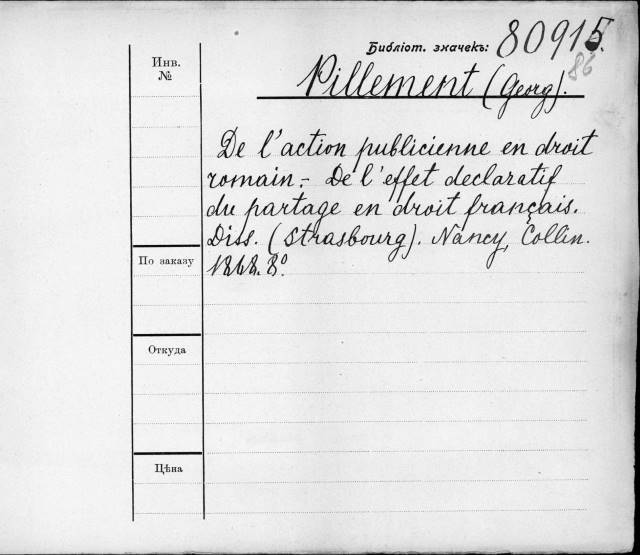 Библіот. значекъ: 80915.
86
Инв.
№
Pillement (Georg).
De l'action publicienne en droit
romain. - De l'effet declaratif
du partage en droit français.
Diss. (Strasbourg). Nancy, Collin.
1868. 8°.
По заказу
Откуда
Цѣна